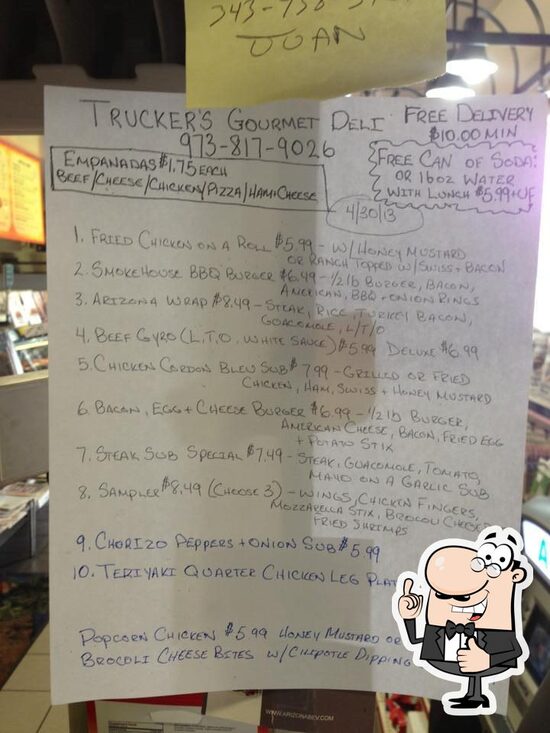 JUAN
TRUCKER'S GOURMET DELI
973-817-9026
FREE DELIVERY
$10.00 MIN
EMPANADAS $1.75 EACH
BEEF/CHEESE/CHICKEN/PIZZA/HAM+CHEESE
FREE CAN OF SODA
OR 16oz WATER
WITH LUNCH $5.99+UP
4/30/13
1. FRIED CHICKEN ON A ROLL $5.99 - W/HONEY MUSTARD
OR RANCH TOPPED W/SWISS+BACON
2. SMOKEHOUSE BBQ BURGER $6.49 - 1/2 lb BURGER, BACON,
AMERICAN, BBQ+ONION RINGS
3. ARIZONA WRAP $8.49 - STEAK, RICE, TURKEY BACON,
GUACOMOLE, L/T/O
4. BEEF GYRO (L,T,O, WHITE SAUCE) $5.99 DELUXE $6.99
5. CHICKEN CORDON BLEU SUB $7.99 - GRILLED OR FRIED
CHICKEN, HAM, SWISS + HONEY MUSTARD
6. BACON, EGG + CHEESE BURGER $6.99 - 1/2 lb BURGER,
AMERICAN CHEESE, BACON, FRIED EGG
+ POTATO STIX
7. STEAK SUB SPECIAL $7.49 - STEAK, GUACOMOLE, TOMATO,
MAYO ON A GARLIC SUB
8. SAMPLER $8.49 (CHOOSE 3) - WINGS, CHICKEN FINGERS,
MOZZARELLA STIX, BROCOLI CHEESE
FRIED SHRIMPS
9. CHORIZO PEPPERS + ONION SUB $5.99
10. TERIYAKI QUARTER CHICKEN LEG PLAT
POPCORN CHICKEN $5.99 HONEY MUSTARD OR
BROCOLI CHEESE BITES W/CHIPOTLE DIPPING
WWW.ARIZONABEV.COM